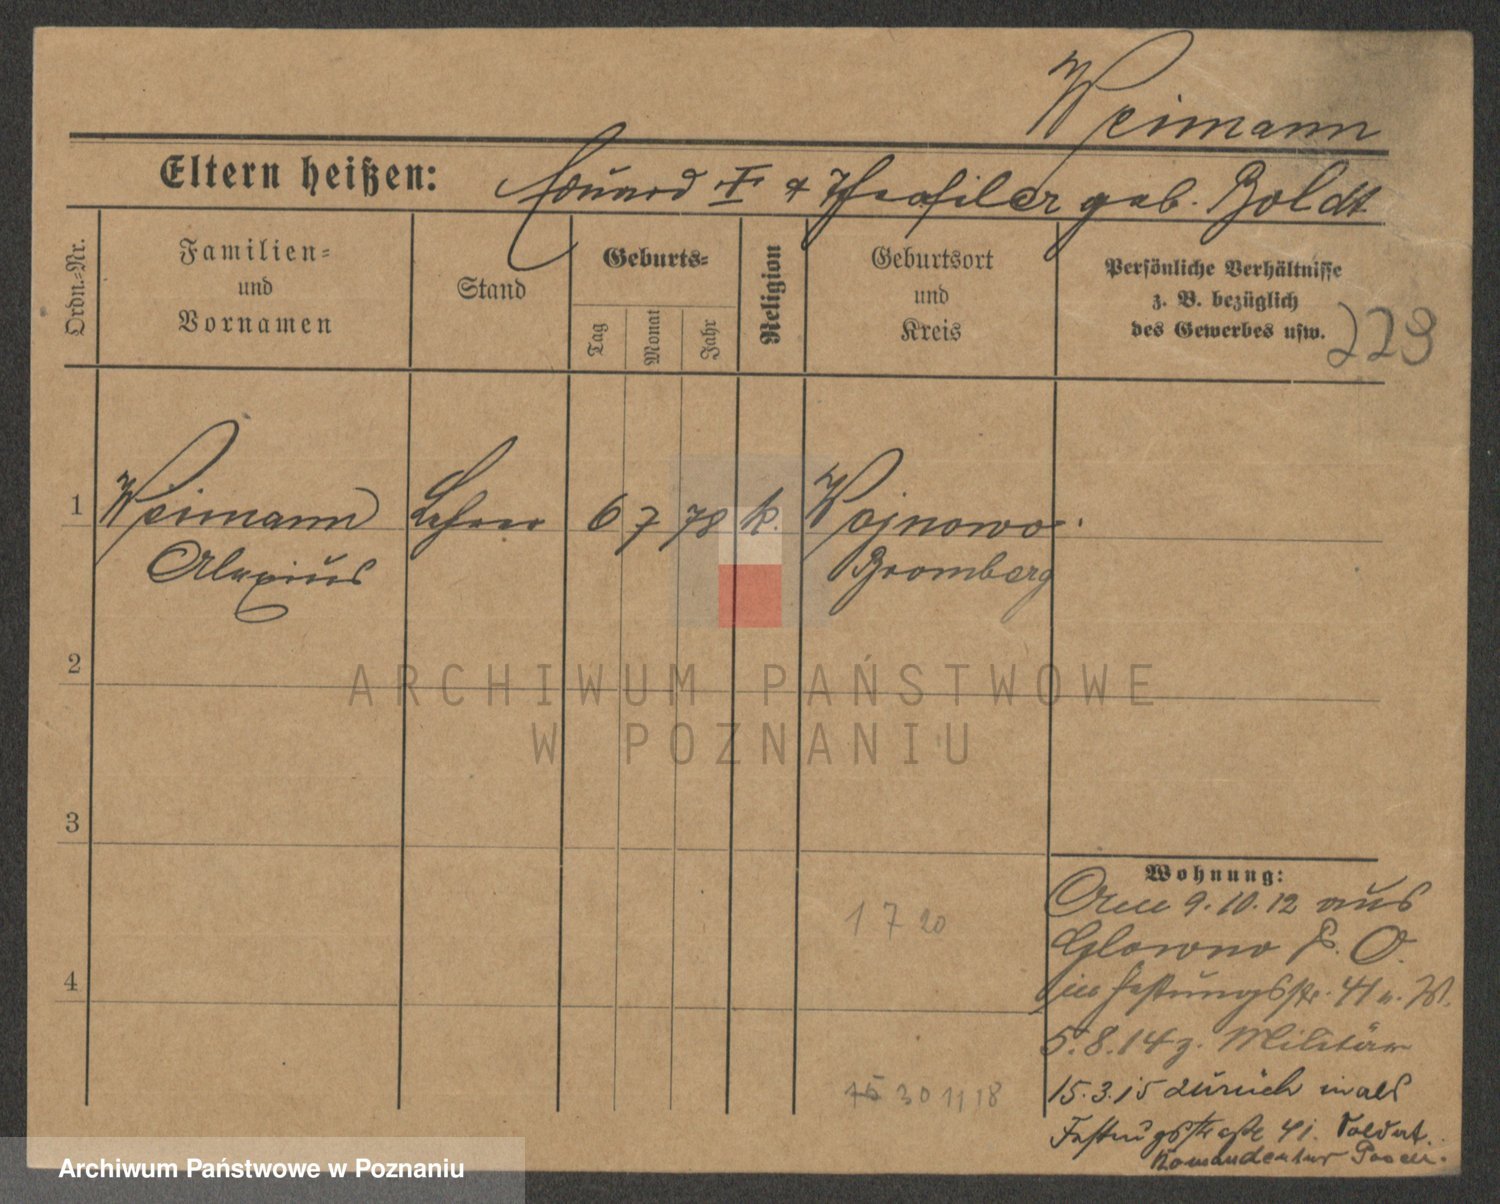 Weimann
Eltern heißen: Eduard I & Theofila geb. Boldt
Ordn.-Nr.
Familien-
und
Vornamen
Stand
Geburts-
Tag
Monat
Jahr
Religion
Geburtsort
und
Kreis
Persönliche Verhältnisse
z. B. bezüglich
des Gewerbes usw.
229
1 Weimann Lehrer 6 7 78 k. Wojnowo
Alexius Bromberg
2
ARCHIWUM PAŃSTWOWE
W POZNANIU
3
Wohnung:
9.10.12 aus
1 7 20
Glowno P. O.
4
in Festungsstr. 41 u. W.
5.8.14 z. Militär
15 30 11 18
15.3.15 zurück
Festungsstraße 41. Soldat.
Komandentur Posen.
Archiwum Państwowe w Poznaniu